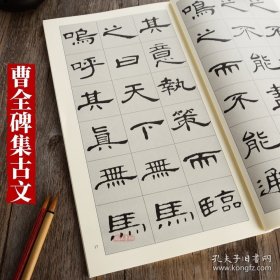 曹全碑集古文
之不能
之而不能通
其意執策而臨
之曰天下無馬
嗚呼其真無馬
孔夫子旧书网